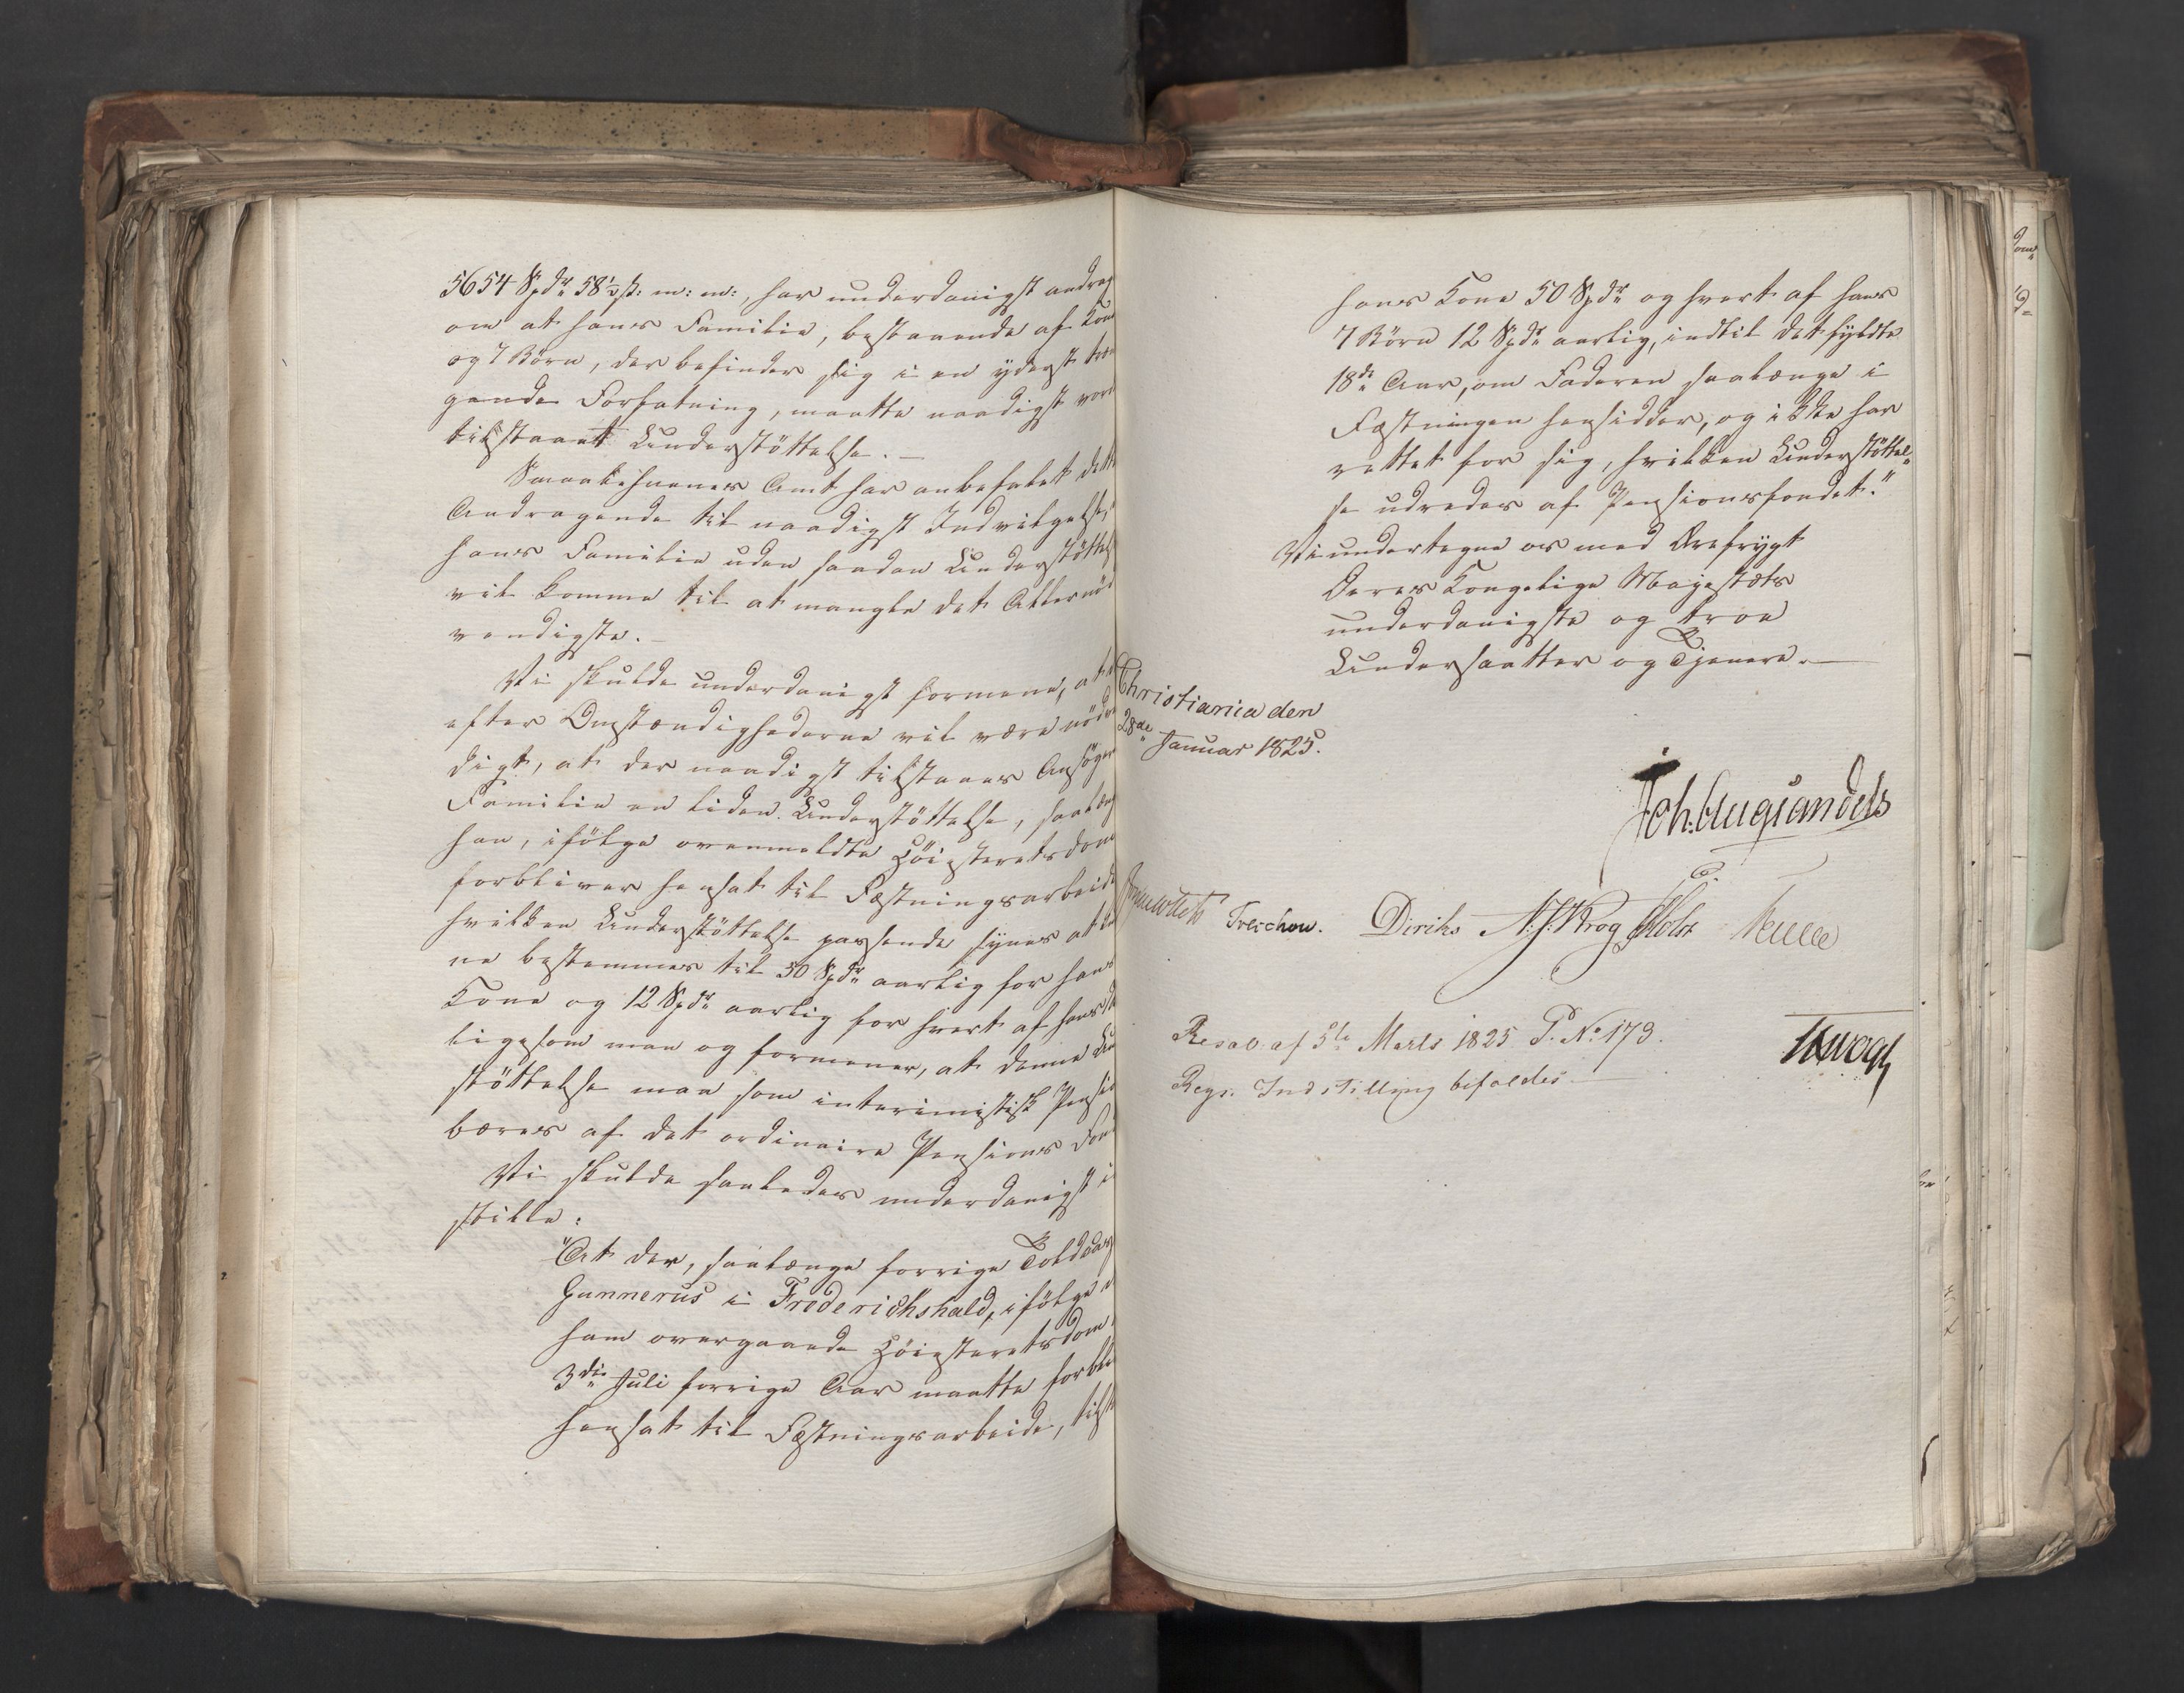 5654 Spdr 58½ ß: m: m:, har underdanigst andrag
om at hans Familie, bestaaende af Kone
og 7 Børn, der befinder sig i en yderst træn
gende Forfatning, maatte naadigst vorde
tilstaaet Understöttelse. —
Smaalehnenes Amt har anbefalet dette
Andragende til naadigst Indvilgelse,
hans Familie uden saadan Understöttelse
vil komme til at mangle det Allernöd
vendigste. —
Vi skulde underdanigst formene, at
efter Omstændighederne vil være nödven
digt, at der naadigst tilstaaes Ansøgerens
Familie en liden Understöttelse, saalænge
han, ifölge ovenmeldte Höiesteretsdom
forbliver hensat til Fæstningsarbeide
hvilken Understöttelse passende synes at kun
ne bestemmes til 50 Spdr aarlig for hans
Kone og 12 Spdr aarlig for hvert af hans
ligesom man og formener, at denne Un
støttelse maa som interimistisk Pension
bæres af det ordinaire Pensions Fond
Vi skulde saaledes underdanigst ind
stille:
"At der, saalænge forrige Toldcas
Gunnerus i Frederichshald, ifölge
ham overgaaede Höiesteretsdom
3die Juli forrige Aar maatte forbli
hensat til Fæstningsarbeide, tilst
hans Kone 50 Spdr og hvert af hans
7 Börn 12 Spdr aarlig, indtil det fyldte
18de Aar, om Faderen saalænge i
Fæstningen hensidder, og ikke har
rettet for sig, hvilken Understöttel-
se udredes af Pensionsfondet."
Vi undertegne os med Ærefrygt
Deres Kongelige Majestæts
underdanigste og troe
Undersaatter og Tjenere. —
Christiania den
28de Januar 1825.
Joh: Aug Sandels
Sommerhielm Treschow. Diriks N. J. Krog Holst
Resol. af 5te Marts 1825 P. No 173.
Regs. Indstilling bifaldes